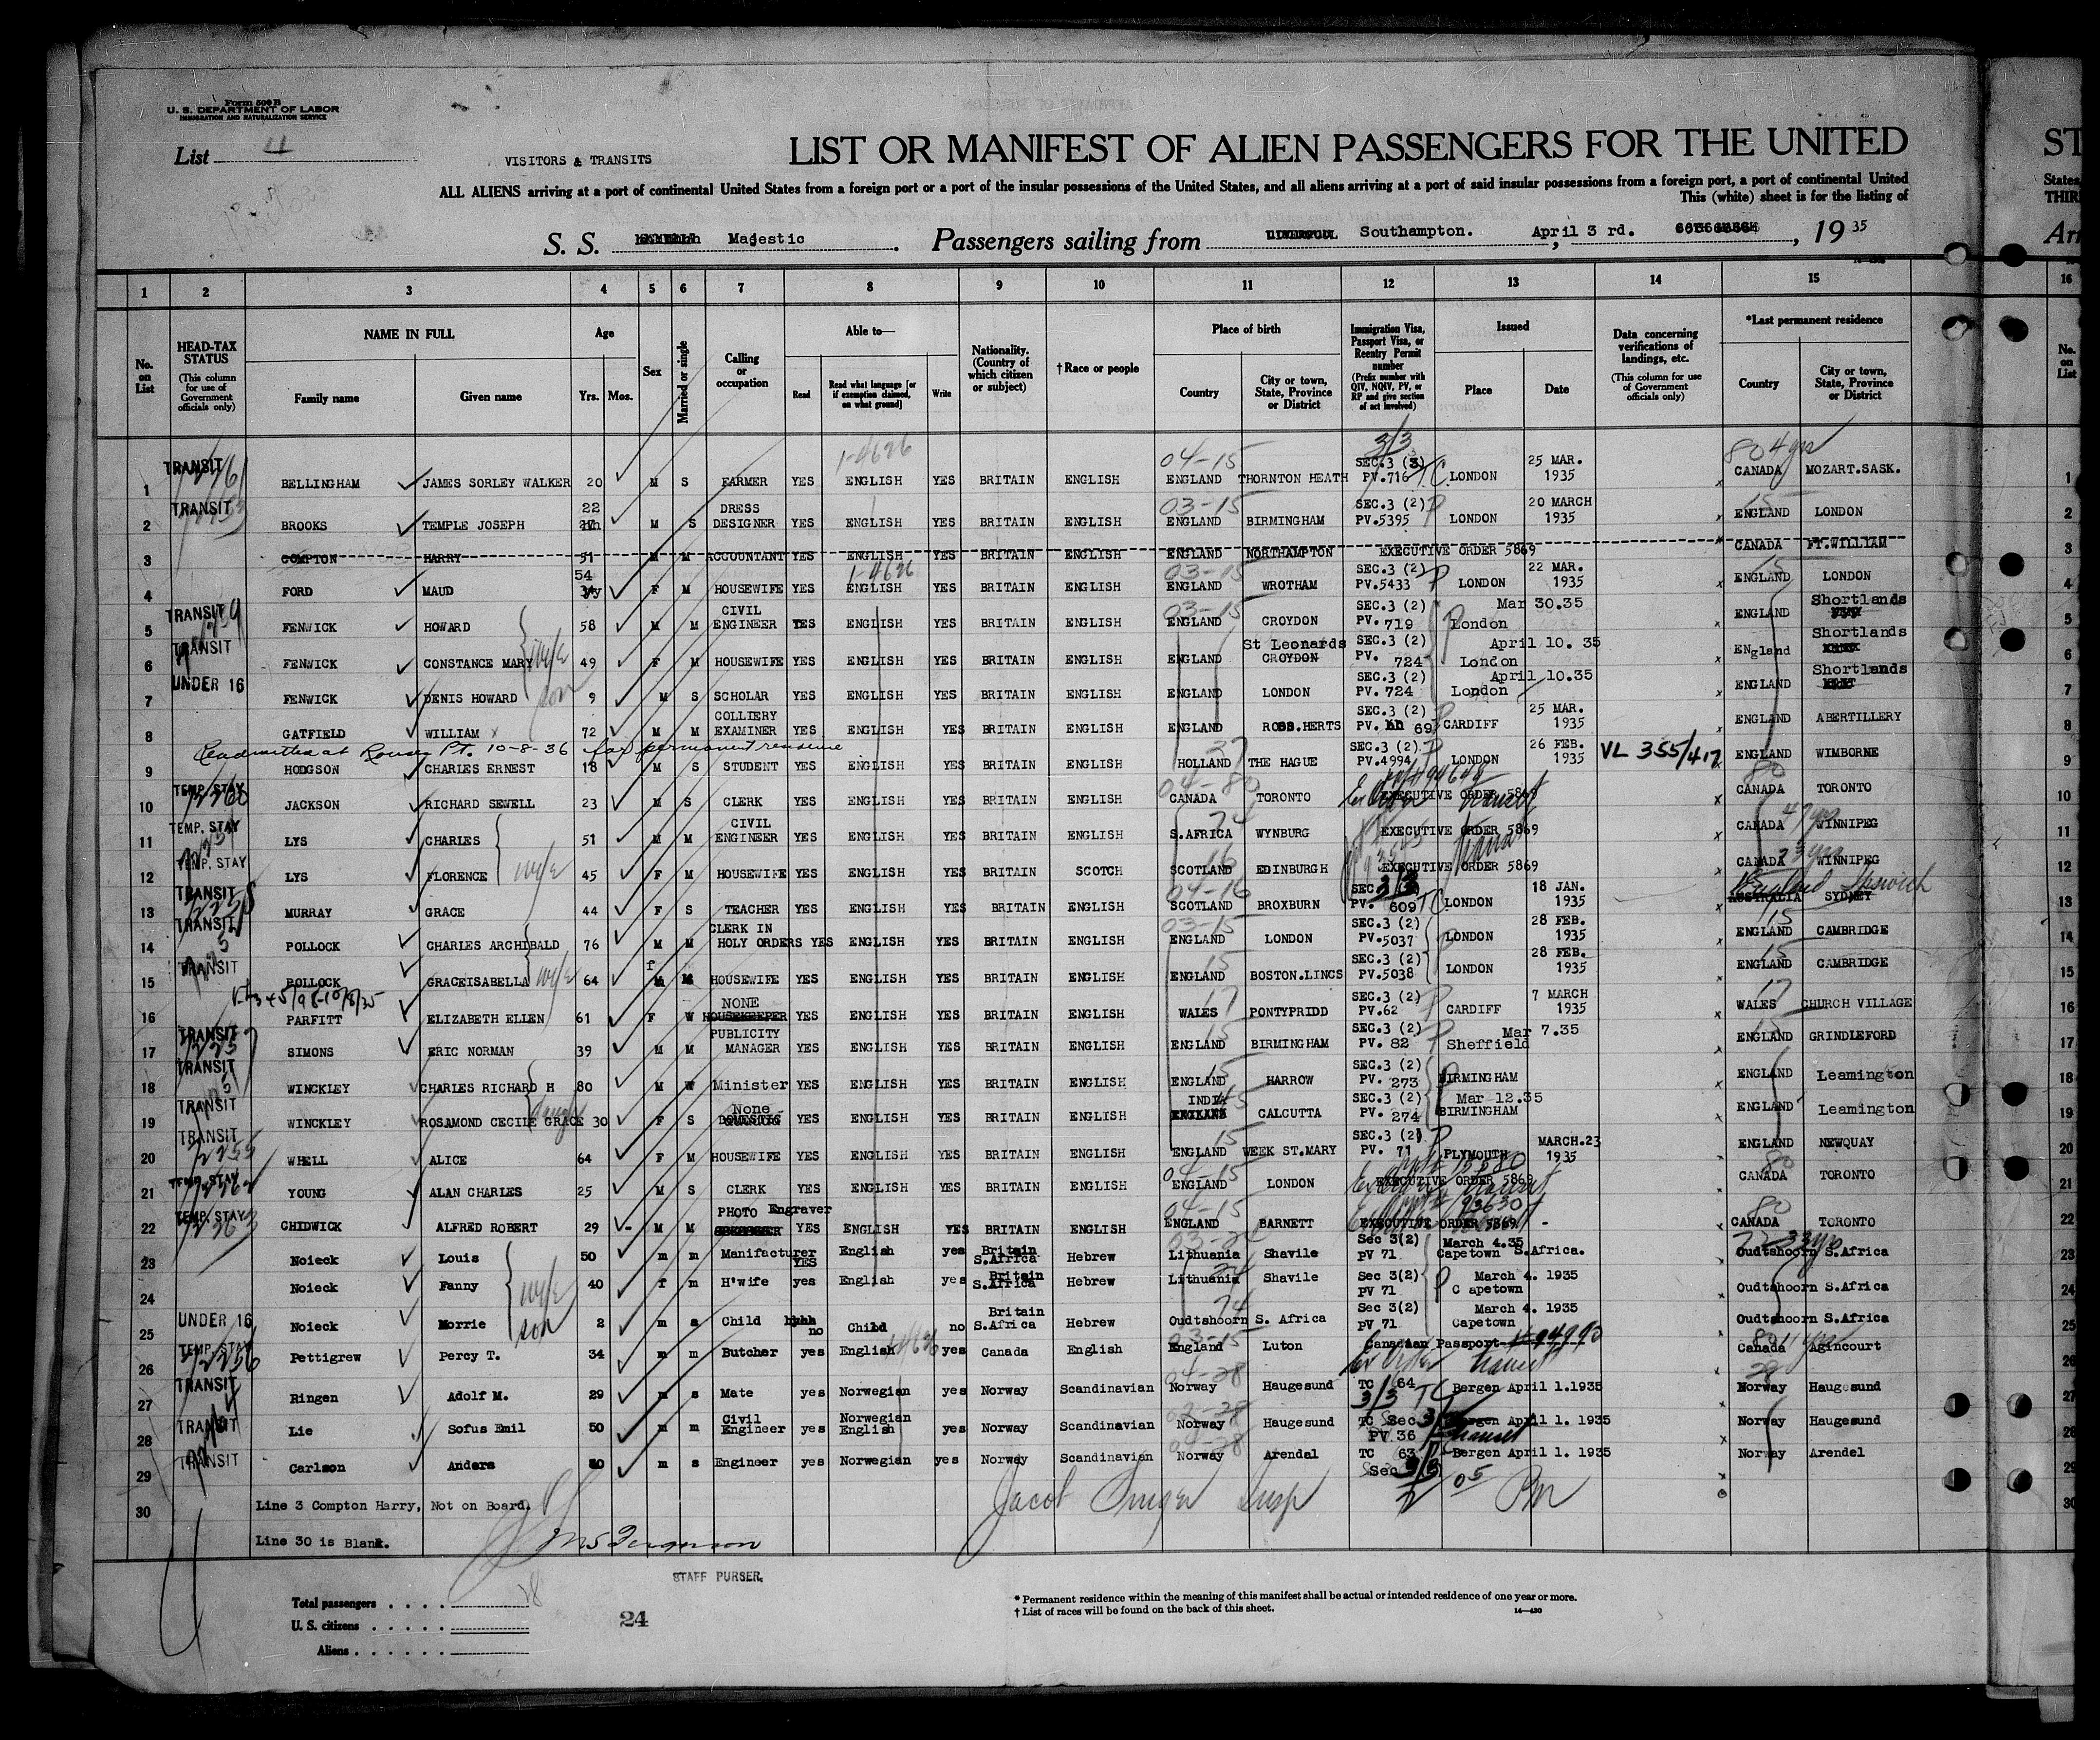 Form 500 B
U. S. DEPARTMENT OF LABOR
IMMIGRATION AND NATURALIZATION SERVICE
List 4
VISITORS & TRANSITS
LIST OR MANIFEST OF ALIEN PASSENGERS FOR THE UNITED
ST
ALL ALIENS arriving at a port of continental United States from a foreign port or a port of the insular possessions of the United States, and all aliens arriving at a port of said insular possessions from a foreign port, a port of continental United
States,
This (white) sheet is for the listing of
THIR
S. S. Majestic . Passengers sailing from Southampton. , April 3 rd. , 19 35
Arr
1 2 3 4 5 6 7 8 9 10 11 12 13 14 15 16
No. on List
HEAD-TAX STATUS (This column for use of Government officials only)
NAME IN FULL
Family name Given name
Age Yrs. Mos.
Sex
Married or single
Calling or occupation
Able to—
Read Read what language [or if exemption claimed, on what ground] Write
Nationality. (Country of which citizen or subject)
†Race or people
Place of birth
Country City or town, State, Province or District
Immigration Visa, Passport Visa, or Reentry Permit number (Prefix number with QIV, NQIV, PV, or RP and give section of act involved)
Issued
Place Date
Data concerning verifications of landings, etc. (This column for use of Government officials only)
*Last permanent residence
Country City or town, State, Province or District
No. on List
1 TRANSIT BELLINGHAM JAMES SORLEY WALKER 20 M S FARMER YES ENGLISH 1-4626 YES BRITAIN ENGLISH 04-15 ENGLAND THORNTON HEATH 3/3 SEC.3 (3) PV.716 TC LONDON 25 MAR. 1935 80 4 yrs CANADA MOZART.SASK. 1
2 TRANSIT BROOKS TEMPLE JOSEPH 22 M S DRESS DESIGNER YES ENGLISH YES BRITAIN ENGLISH 03-15 ENGLAND BIRMINGHAM SEC.3 (2) PV.5395 P LONDON 20 MARCH 1935 15 ENGLAND LONDON 2
3 COMPTON HARRY 51 M M ACCOUNTANT YES ENGLISH YES BRITAIN ENGLISH ENGLAND NORTHAMPTON EXECUTIVE ORDER 5869 CANADA FT.WILLIAM 3
4 FORD MAUD 54 F M HOUSEWIFE YES ENGLISH 1-4626 YES BRITAIN ENGLISH 03-15 ENGLAND WROTHAM SEC.3 (2) PV.5433 P LONDON 22 MAR. 1935 15 ENGLAND LONDON 4
5 TRANSIT FENWICK HOWARD 58 M M CIVIL ENGINEER YES ENGLISH YES BRITAIN ENGLISH 03-15 ENGLAND CROYDON SEC.3 (2) PV. 719 London Mar 30.35 ENGLAND Shortlands 5
6 TRANSIT FENWICK CONSTANCE MARY wife 49 F M HOUSEWIFE YES ENGLISH YES BRITAIN ENGLISH ENGLAND St Leonards CROYDON SEC.3 (2) PV. 724 P London April 10. 35 ENgland Shortlands 6
7 UNDER 16 FENWICK DENIS HOWARD son 9 M S SCHOLAR YES ENGLISH YES BRITAIN ENGLISH ENGLAND LONDON SEC.3 (2) PV. 724 London April 10.35 ENGLAND Shortlands 7
8 GATFIELD WILLIAM x 72 M M COLLIERY EXAMINER YES ENGLISH YES BRITAIN ENGLISH ENGLAND ROSS.HERTS SEC.3 (2) PV. 69 P CARDIFF 25 MAR. 1935 ENGLAND ABERTILLERY 8
Readmitted at Rouses Pt. 10-8-36 for permanent residence
9 HODGSON CHARLES ERNEST 18 M S STUDENT YES ENGLISH YES BRITAIN ENGLISH 37 HOLLAND THE HAGUE SEC.3 (2) PV.4994 P LONDON 26 FEB. 1935 VL 355/417 ENGLAND WIMBORNE 9
10 TEMP. STAY JACKSON RICHARD SEWELL 23 M S CLERK YES ENGLISH YES BRITAIN ENGLISH 04-80 CANADA TORONTO EXECUTIVE ORDER 5869 Ex Order transit 80 CANADA TORONTO 10
11 TEMP. STAY LYS CHARLES 51 M M CIVIL ENGINEER YES ENGLISH YES BRITAIN ENGLISH 74 S.AFRICA WYNBURG EXECUTIVE ORDER 5869 CANADA WINNIPEG 11
12 TEMP. STAY LYS FLORENCE wife 45 F M HOUSEWIFE YES ENGLISH YES BRITAIN SCOTCH 16 SCOTLAND EDINBURGH EXECUTIVE ORDER 5869 CANADA WINNIPEG 12
13 TRANSIT MURRAY GRACE 44 F S TEACHER YES ENGLISH YES BRITAIN ENGLISH 04-16 SCOTLAND BROXBURN SEC 3/3 PV. 609 TC LONDON 18 JAN. 1935 England Ipswich AUSTRALIA SYDNEY 13
14 TRANSIT POLLOCK CHARLES ARCHIBALD 76 M M CLERK IN HOLY ORDERS YES ENGLISH YES BRITAIN ENGLISH 03-15 ENGLAND LONDON SEC.3 (2) PV.5037 LONDON 28 FEB. 1935 15 ENGLAND CAMBRIDGE 14
15 TRANSIT POLLOCK GRACEISABELLA wife 64 f M HOUSEWIFE YES ENGLISH YES BRITAIN ENGLISH 15 ENGLAND BOSTON.LINCS SEC.3 (2) PV.5038 LONDON 28 FEB. 1935 15 ENGLAND CAMBRIDGE 15
16 PARFITT ELIZABETH ELLEN 61 F W NONE HOUSEKEEPER YES ENGLISH YES BRITAIN ENGLISH 17 WALES PONTYPRIDD SEC.3 (2) PV.62 P CARDIFF 7 MARCH 1935 17 WALES CHURCH VILLAGE 16
17 TRANSIT SIMONS ERIC NORMAN 39 M M PUBLICITY MANAGER YES ENGLISH YES BRITAIN ENGLISH 15 ENGLAND BIRMINGHAM SEC.3 (2) PV. 82 P Sheffield Mar 7.35 15 ENGLAND GRINDLEFORD 17
18 TRANSIT WINCKLEY CHARLES RICHARD H 80 M W Minister YES ENGLISH YES BRITAIN ENGLISH 15 ENGLAND HARROW SEC.3 (2) PV. 273 BIRMINGHAM ENGLAND Leamington 18
19 TRANSIT WINCKLEY ROSAMOND CECILE GRACE 30 F S None DOMESTIC YES ENGLISH YES BRITAIN ENGLISH INDIA 45 ENGLAND CALCUTTA SEC.3 (2) PV. 274 BIRMINGHAM Mar 12.35 ENGLAND Leamington 19
20 TRANSIT WHELL ALICE 64 F M HOUSEWIFE YES ENGLISH YES BRITAIN ENGLISH 15 ENGLAND WEEK ST.MARY SEC.3 (2) PV. 71 P PLYMOUTH MARCH.23 1935 ENGLAND NEWQUAY 20
21 TEMP. STAY YOUNG ALAN CHARLES 25 M S CLERK YES ENGLISH YES BRITAIN ENGLISH 04-15 ENGLAND LONDON EXECUTIVE ORDER 5869 80 CANADA TORONTO 21
22 TEMP. STAY CHIDWICK ALFRED ROBERT 29 M M PHOTO Engraver YES ENGLISH YES BRITAIN ENGLISH 04-15 ENGLAND BARNETT EXECUTIVE ORDER 5869 - 80 CANADA TORONTO 22
23 Noieck Louis 50 m m Manifacturer YES English yes Britain S.Africa Hebrew Lithuania Shavile Sec 3(2) pV 71 March 4.35 Capetown S.Africa. Oudtshoorn S.Africa 23
24 Noieck Fanny wife 40 f m H'wife yes English yes Britain S.Africa Hebrew Lithuania Shavile Sec 3(2) pV 71 P March 4. 1935 C apetown Oudtshoorn S.Africa 24
25 UNDER 16 Noieck Morrie son 2 m s Child no Child no Britain S.Africa Hebrew 74 Oudtshoorn S. Africa Sec 3(2) pV 71 March 4. 1935 Capetown Oudtshoorn S.Africa 25
26 TEMP. STAY Pettigrew Percy T. 34 m m Butcher yes English yes Canada English 03-15 England Luton Canadian Passport Ex Order transit 80 11 yrs Canada Agincourt 26
27 TRANSIT Ringen Adolf M. 29 m s Mate yes Norwegian yes Norway Scandinavian 04-28 Norway Haugesund TC 64 3/3 TC Bergen April 1.1935 28 Norway Haugesund 27
28 TRANSIT Lie Sofus Emil 50 m m Civil Engineer yes Norwegian English yes Norway Scandinavian Norway Haugesund TC Sec 3 PV 36 Bergen April 1. 1935 transit Norway Haugesund 28
29 TRANSIT Carlson Anders m s Engineer yes Norwegian yes Norway Scandinavian Norway Arendal TC 63 Sec 3/3 Bergen April 1. 1935 Norway Arendel 29
30 Line 3 Compton Harry, Not on Board. 30
Line 30 is Blank.
STAFF PURSER.
Total passengers . . . . 28
U. S. citizens . . . . .
Aliens . . . . . .
24
* Permanent residence within the meaning of this manifest shall be actual or intended residence of one year or more.
† List of races will be found on the back of this sheet.
14—430